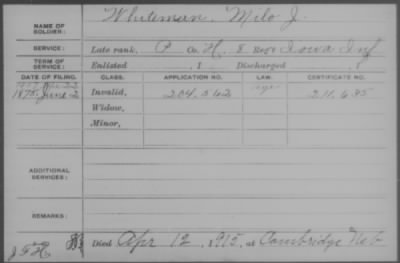 NAME OF SOLDIER: Whiteman, Milo J.
SERVICE: Late rank, P Co. H, 8 Reg't Iowa Inf
TERM OF SERVICE: Enlisted , 1 Discharged , 1
DATE OF FILING. CLASS. APPLICATION NO. LAW. CERTIFICATE NO.
1875, June 2 Invalid, 204.562 211.635
Widow,
Minor,
ADDITIONAL SERVICES:
REMARKS:
Died Apr 12, 1915, at Cambridge Neb